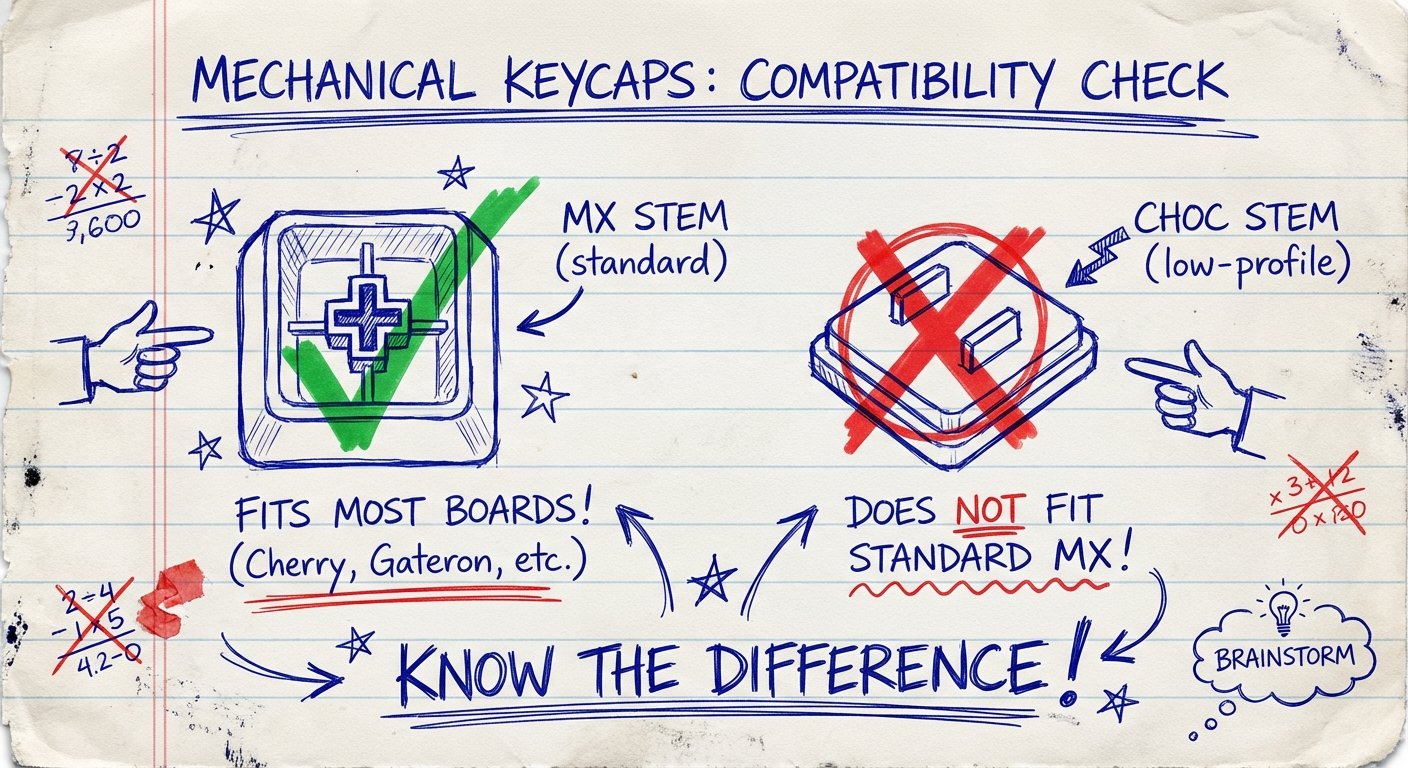 MECHANICAL KEYCAPS: COMPATIBILITY CHECK
8÷2
-2×2
3,600
MX STEM
(standard)
CHOC STEM
(low-profile)
FITS MOST BOARDS!
(Cherry, Gateron, etc.)
DOES NOT FIT
STANDARD MX!
2÷4
-1×5
4.2-0
KNOW THE DIFFERENCE!
BRAINSTORM